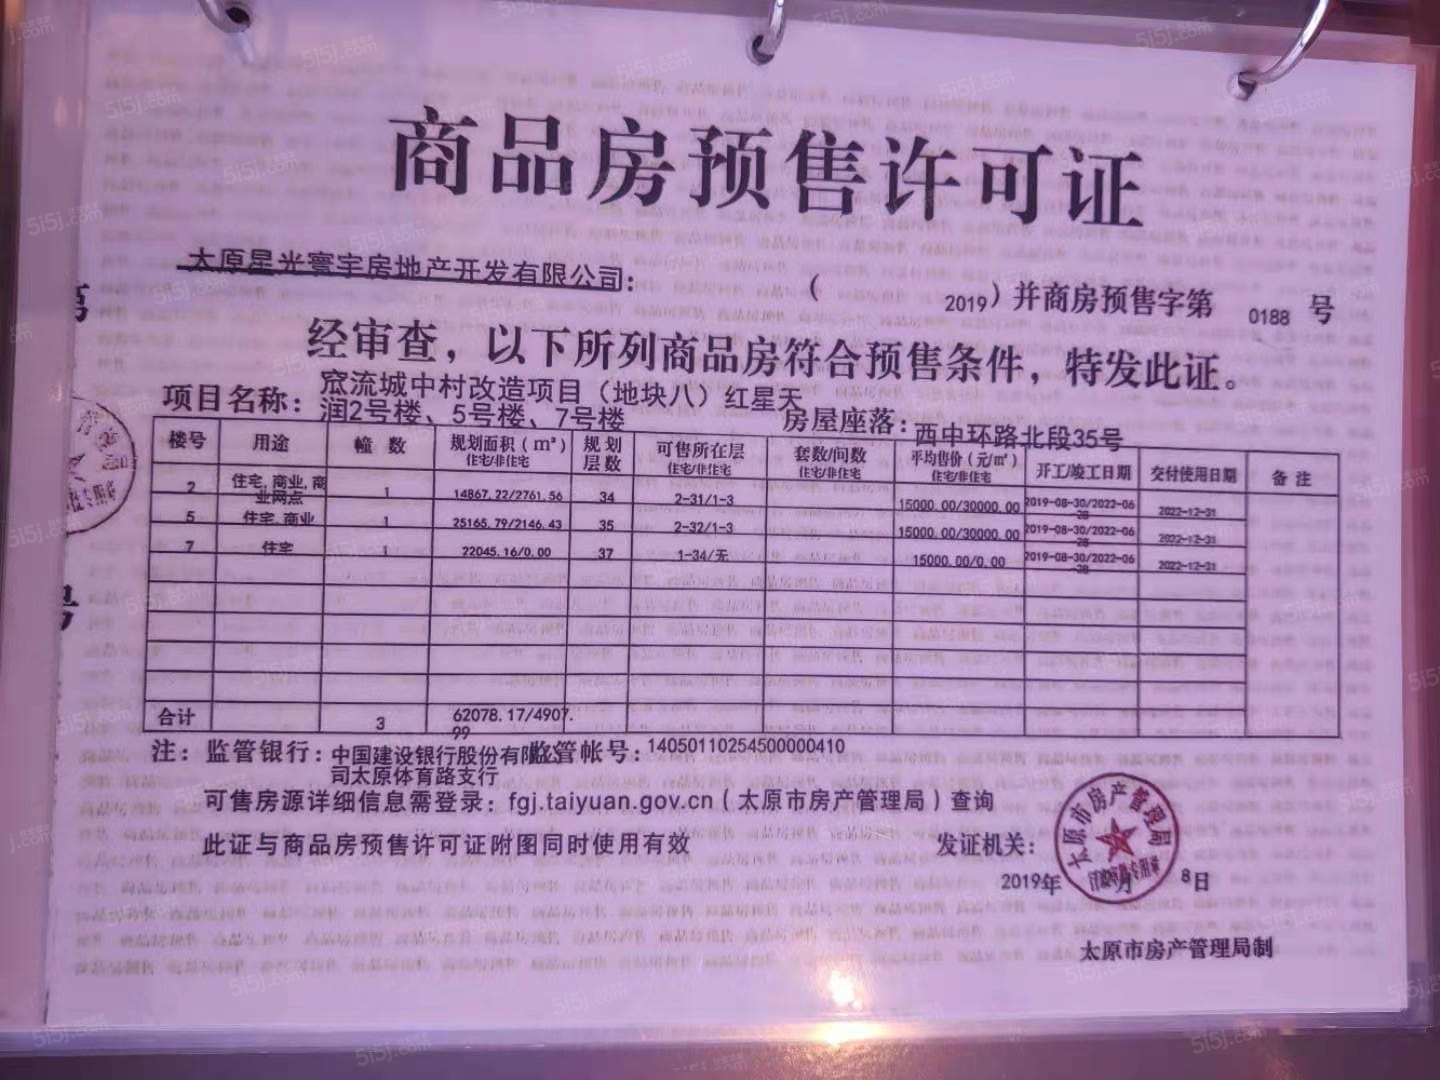 商品房预售许可证
太原星光寰宇房地产开发有限公司:
( 2019 ) 并商房预售字第 0188 号
经审查，以下所列商品房符合预售条件，特发此证。
项目名称: 窊流城中村改造项目（地块八）红星天
润2号楼、5号楼、7号楼
房屋座落: 西中环路北段35号
楼号 用途 幢 数 规划面积(m²) 住宅/非住宅 规划层数 可售所在层 住宅/非住宅 套数/间数 住宅/非住宅 平均售价(元/㎡) 住宅/非住宅 开工/竣工日期 交付使用日期 备 注
2 住宅,商业,商业网点 1 14867.22/2761.56 34 2-31/1-3 15000.00/30000.00 2019-08-30/2022-06-28 2022-12-31
5 住宅,商业 1 25165.79/2146.43 35 2-32/1-3 15000.00/30000.00 2019-08-30/2022-06-28 2022-12-31
7 住宅 1 22045.16/0.00 37 1-34/无 15000.00/0.00 2019-08-30/2022-06-28 2022-12-31
合计 3 62078.17/4907.99
注: 监管银行: 中国建设银行股份有限公
司太原体育路支行
监管帐号: 14050110254500000410
可售房源详细信息需登录: fgj.taiyuan.gov.cn ( 太原市房产管理局 ) 查询
此证与商品房预售许可证附图同时使用有效
发证机关:
太原市房产管理局
2019年 月 8日
太原市房产管理局制
5i5j.com